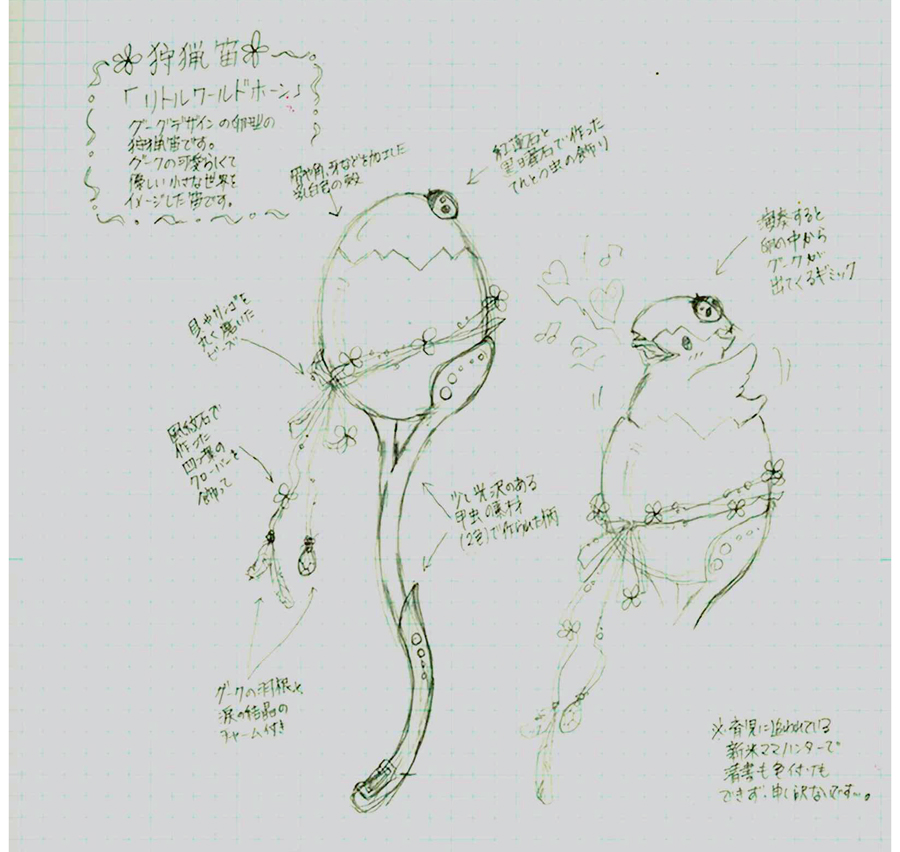 狩猟笛
「リトルワールドホーン」
グークデザインの卵型の
狩猟笛です。
グークの可愛らしくて
優しい小さな世界を
イメージした笛です。
骨や角、牙などを加工した
乳白色の殻
紅蓮石と
黒曜石で作った
てんとう虫の飾り
演奏すると
卵の中から
グークが
出てくるギミック
貝やサンゴを
丸く磨いた
ビーズ
風紋石で
作った
四ツ葉の
クローバーを
飾って
少し光沢のある
甲虫の素材
(2色)で作られた柄
グークの羽根と
涙の結晶の
チャーム付き
※育児に追われている
新米ママハンターで
清書も色付けも
できず、申し訳ないです…。